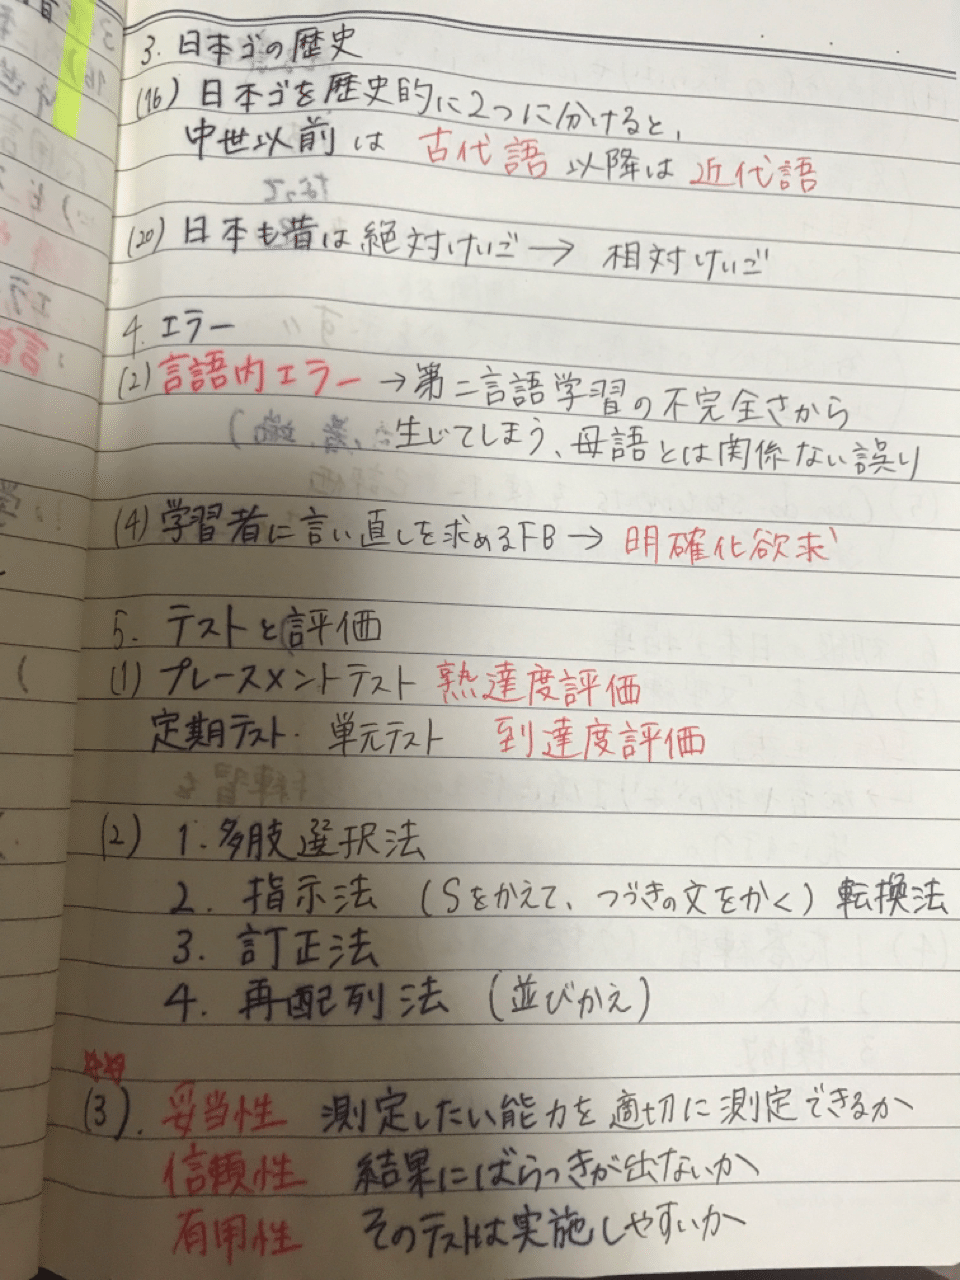 3. 日本ゴの歴史
(16) 日本ゴを歴史的に2つに分けると,
中世以前は 古代語 以降は 近代語
(20) 日本も昔は絶対けいご→ 相対けいご
4. エラー
(2) 言語内エラー →第二言語学習の不完全さから
生じてしまう、母語とは関係ない誤り
(4) 学習者に言い直しを求めるFB→ 明確化欲求
5. テストと評価
(1) プレースメントテスト 熟達度評価
定期テスト・単元テスト 到達度評価
(2) 1. 多肢選択法
2. 指示法 (Sをかえて、つづきの文をかく) 転換法
3. 訂正法
4. 再配列法 (並びかえ)
(3). 妥当性 測定したい能力を適切に測定できるか
信頼性 結果にばらつきが出ないか
有用性 そのテストは実施しやすいか